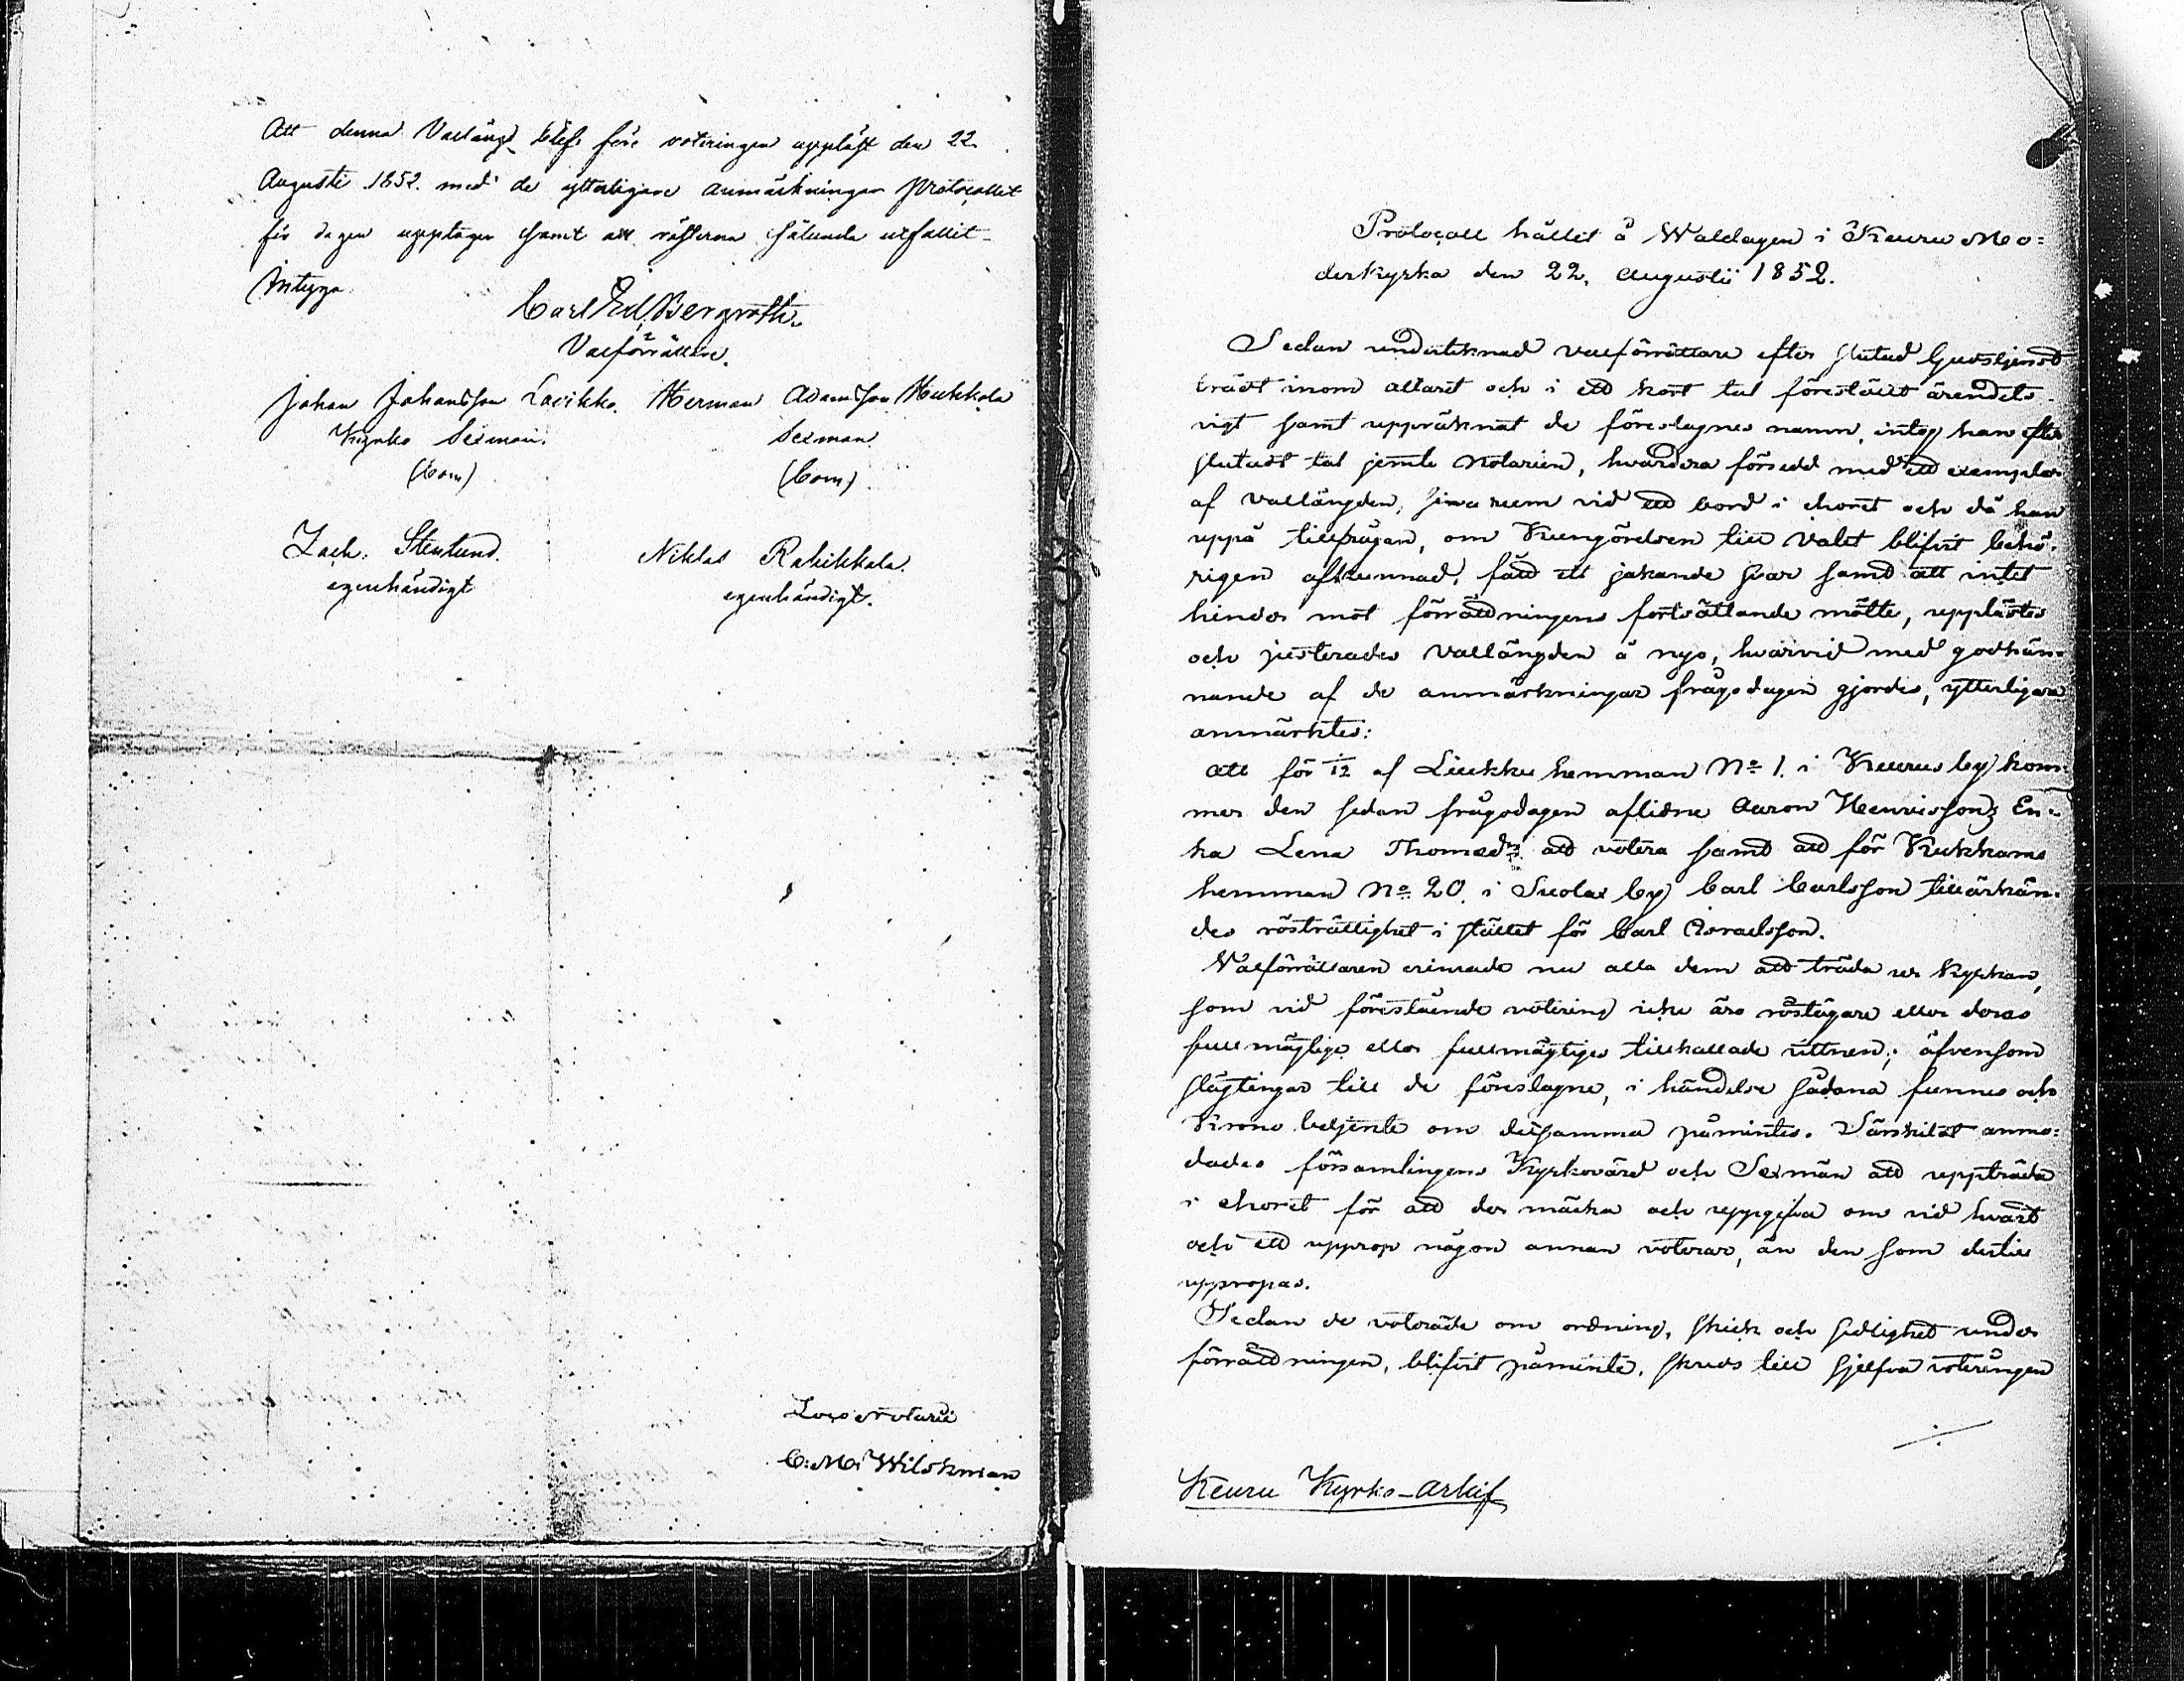 Att denna Vallängd blefs före voteringen uppläst den 22
Augusti 1852. med de ytterligare anmärkningar Protocollet
för dagen upptager samt att rösterna sålunda utfallit
intyga
Carl Ed. Bergroth.
Valförrättare.
Johan Johansson Lavikko. Herman Adamsson Hukkola
Kyrko Sexman. Sexman
(bom) (bom)
Zach: Stenlund. Niklas Rahikkala.
egenhändigt egenhändigt.
Loco Notarii
C. M. Wilskman
Protocoll hållit å Waldagen i Keuru Mo=
derkyrka den 22. Augustii 1852.
Sedan undertecknad valförrättare efter slutad Gudstjenst
trädt inom altaret och i ett kort tal föreställt ärendets
vigt samt uppräknat de föreslagnes namn, intog han efter
slutadt tal jemte Notarien, hvardera försedd med ett exemplar
af vallängden, sina rum vid ett bord i choret och då han
uppå tillfrågan, om Kungörelsen till Valet blifvit behö-
rigen afkunnad, fått ett jakande svar samt att intet
hinder mot förrättningens fortsättande mötte, upplästes
och justerades vallängden å nyo, hvarvid med godkän-
nande af de anmärkningar frågodagen gjordes, ytterligare
anmärktes:
att för 1/12 af Liukku hemman No 1. i Keuru by kom-
mer den sedan frågodagen aflidne Aaron Henricssons En-
ka Lena Thomædr att votera samt att för Kukkans
hemman No 20. i Suolax by Carl Carlsson tillärkän-
des rösträttighet i stället för Carl Israelsson.
Valförrättaren erinrade nu alla dem att träda ur Kyrkan,
som vid förestående votering icke äro röstägare eller deras
fullmägtige eller fullmägtiges tillkallade vittnen; äfvensom
slägtingar till de föreslagne, i händelse sådana funnes och
Krono betjente om detsamma påmintes. Särskilt anmo-
dades församlingens Kyrkovärd och Sexmän att uppträda
i choret för att der märka och uppgifva om vid hvart
och ett upprop någon annan voterar, än den som dertill
uppropas.
Sedan de voterande om ordning, skick och sedlighet under
förrättningen, blifvit påminte, skreds till sjelfva voteringen
./.
Keuru Kyrko-Arkif